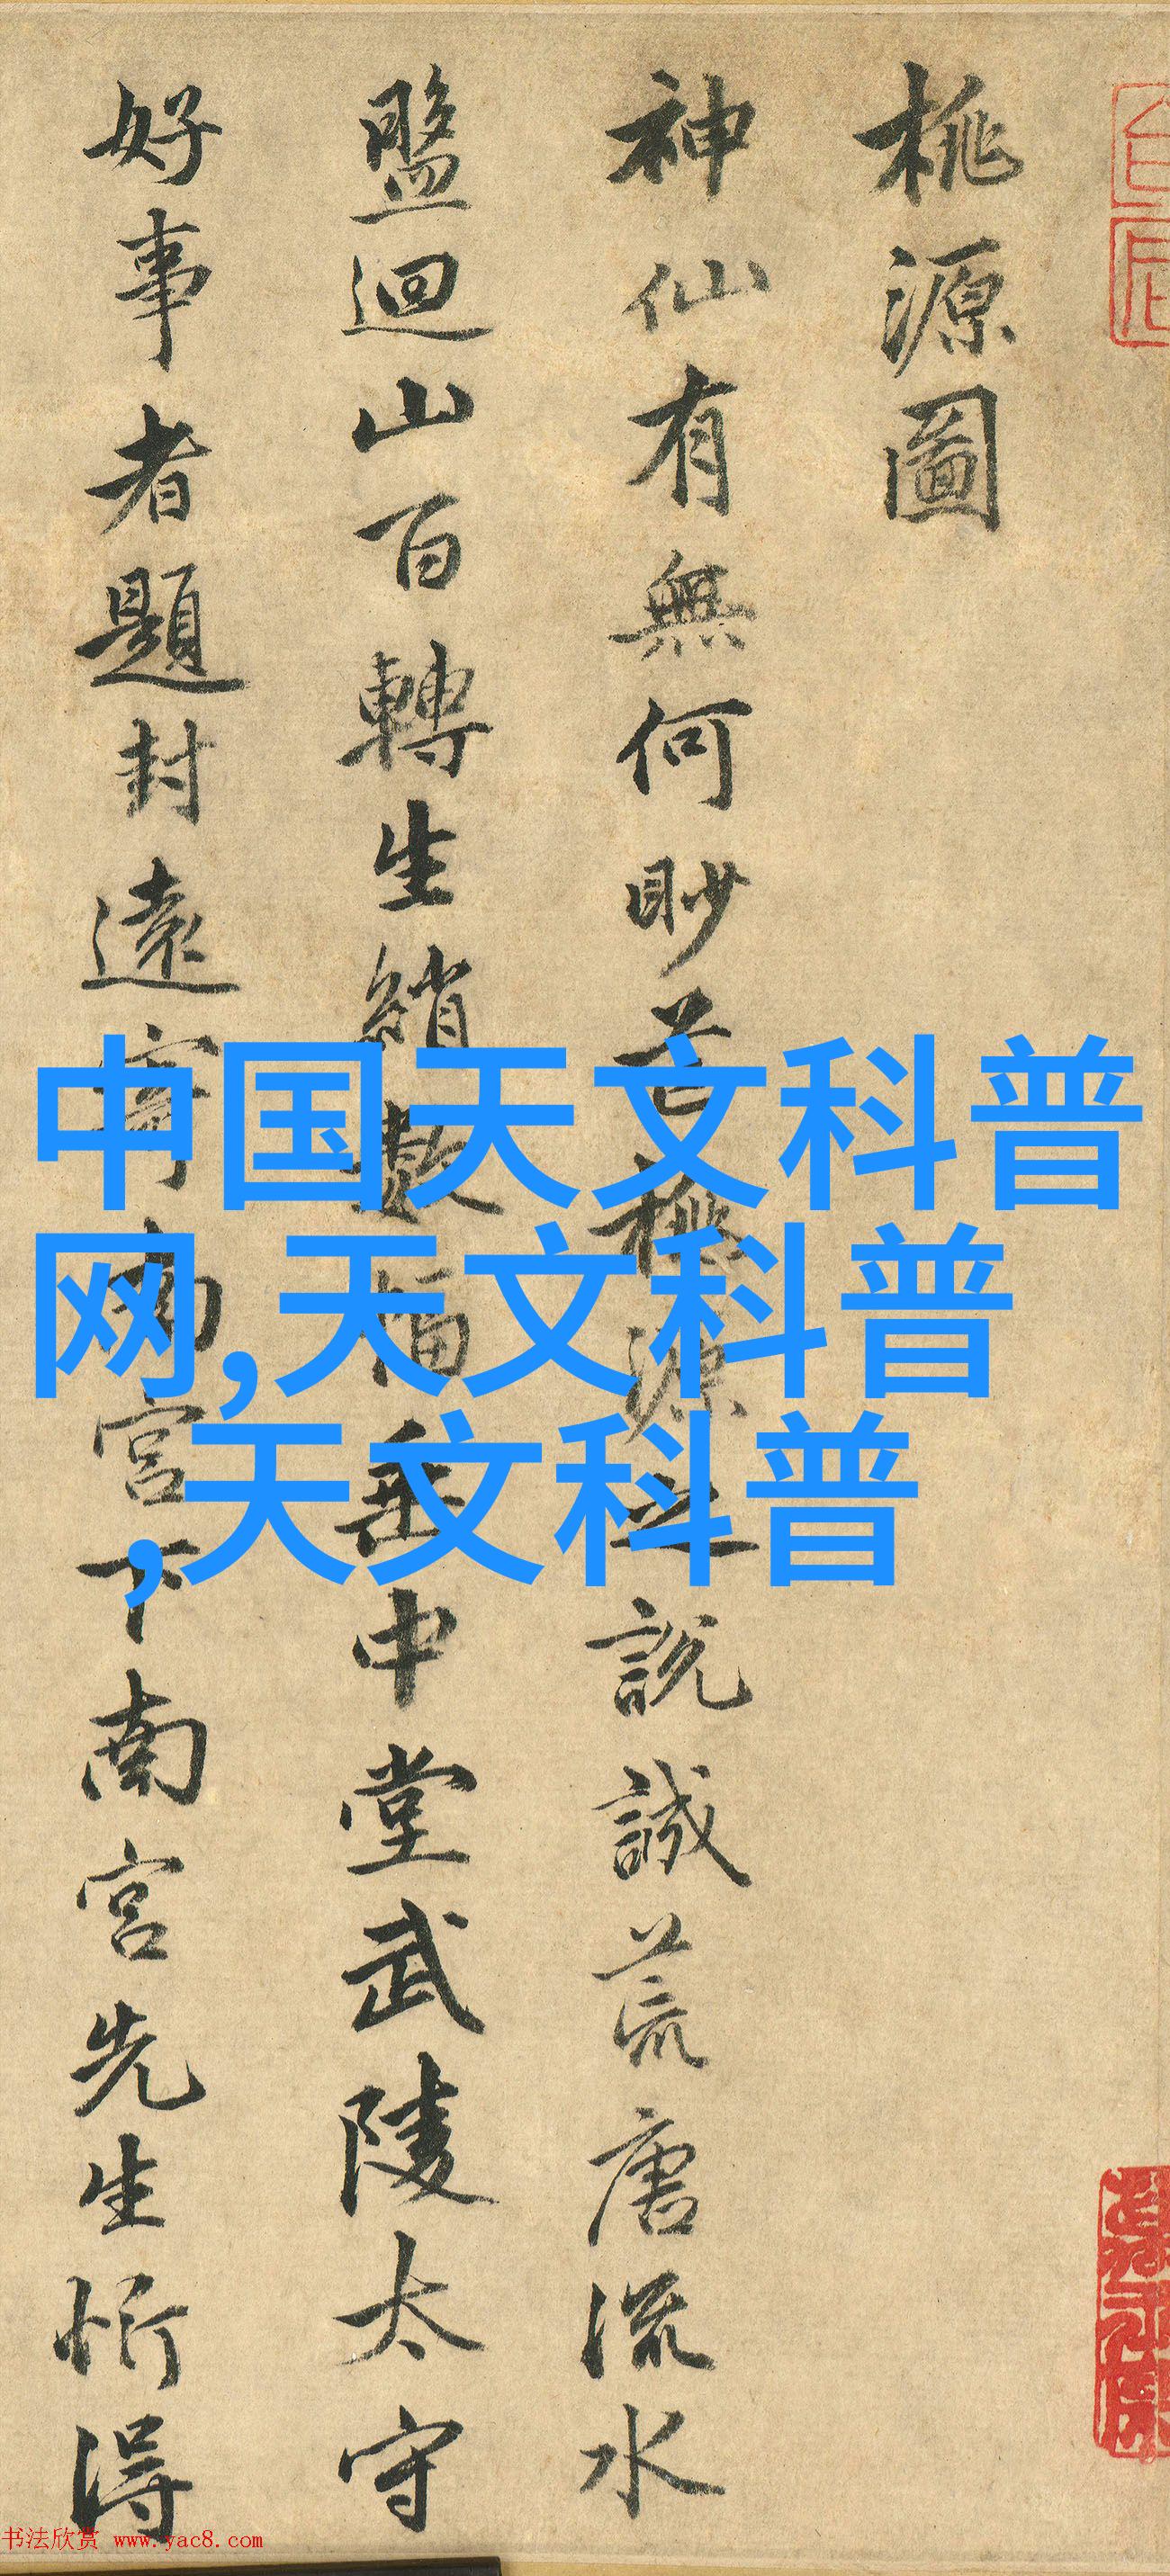 桃源圖
神仙有無何眇芒桃源之說誠荒唐流水
盤迴山百轉生綃數幅垂中堂武陵太守
好事者題封遠寄南宮下南宮先生忻得
中国天文科普
网,天文科普
,天文科普
书法欣赏 www.yac8.com